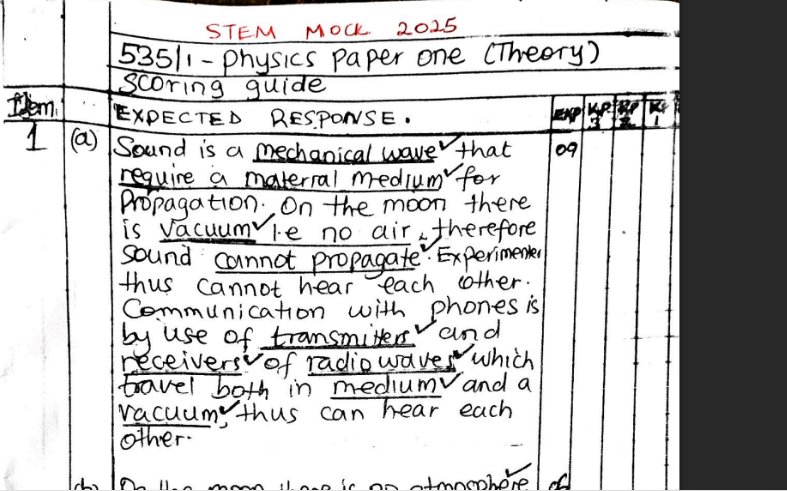 STEM MOCK 2025
535/1 - Physics Paper one (Theory)
Scoring guide
Item. EXPECTED RESPONSE. EXP KP 3 KP 2 KP 1
1 (a) Sound is a mechanical wave✓ that 09
require a material medium✓ for
Propagation. On the moon there
is vacuum✓ i.e no air, therefore
Sound cannot propagate✓. Experimenter
thus cannot hear each other.
Communication with phones is
by use of transmitters✓ and
receivers✓ of radio waves✓ which
travel both in medium✓ and a
vacuum✓, thus can hear each
other.
(b) On the moon there is no atmosphere✓